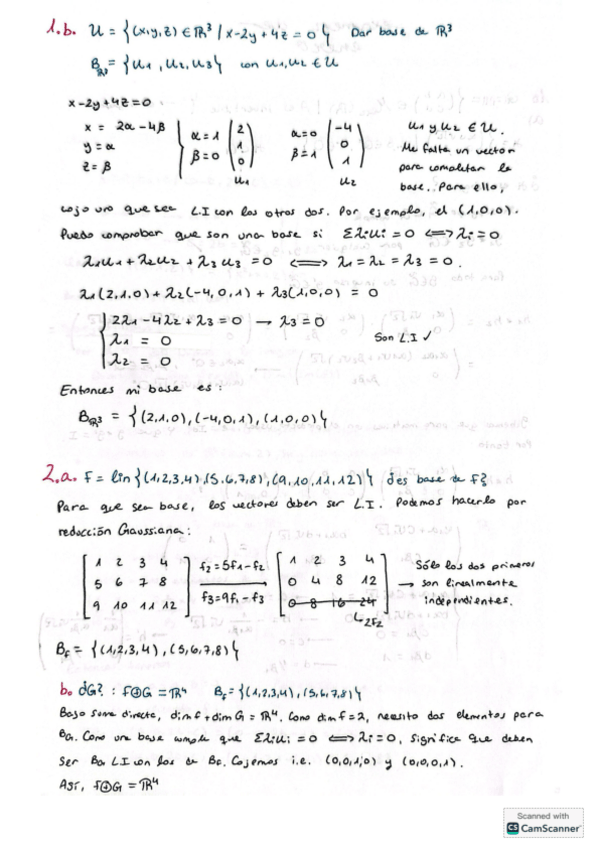 1.b. U = {(x,y,z) ∈ ℝ³ / x-2y+4z = 0} Dar base de ℝ³
Bℝ³ = {u1, u2, u3} con u1, u2 ∈ U
x-2y+4z=0
x = 2α-4β
y = α
z = β
α=1
β=0
(2 1 0)
u1
α=0
β=1
(-4 0 1)
u2
u1 y u2 ∈ U.
Me falta un vector
para completar la
base. Para ello,
cojo uno que sea L.I con los otros dos. Por ejemplo, el (1,0,0).
Puedo comprobar que son una base si Σλiui = 0 ⟺ λi = 0
λ1u1 + λ2u2 + λ3u3 = 0 ⟺ λ1 = λ2 = λ3 = 0.
λ1(2,1,0) + λ2(-4,0,1) + λ3(1,0,0) = 0
2λ1 - 4λ2 + λ3 = 0 → λ3 = 0
λ1 = 0
λ2 = 0
Son L.I ✓
Entonces mi base es:
Bℝ³ = {(2,1,0), (-4,0,1), (1,0,0)}
2.a. F = lin{(1,2,3,4), (5,6,7,8), (9,10,11,12)} ¿es base de F?
Para que sea base, los vectores deben ser L.I. Podemos hacerlo por
reducción Gaussiana:
1 2 3 4
5 6 7 8
9 10 11 12
f2=5f1-f2
f3=9f1-f3
1 2 3 4
0 4 8 12
0 8 16 24
↳ 2f2
Sólo los dos primeros
→ son linealmente
independientes.
BF = {(1,2,3,4), (5,6,7,8)}
b. ¿G? : F⊕G = ℝ⁴ BF = {(1,2,3,4), (5,6,7,8)}
Bajo suma directa, dim F + dim G = ℝ⁴. Como dim F = 2, necesito dos elementos para
BG. Como una base cumple que Σλiui = 0 ⟺ λi = 0, significa que deben
ser BG LI con los de BF. Cojemos i.e. (0,0,1,0) y (0,0,0,1).
Así, F⊕G = ℝ⁴
Scanned with
CS CamScanner